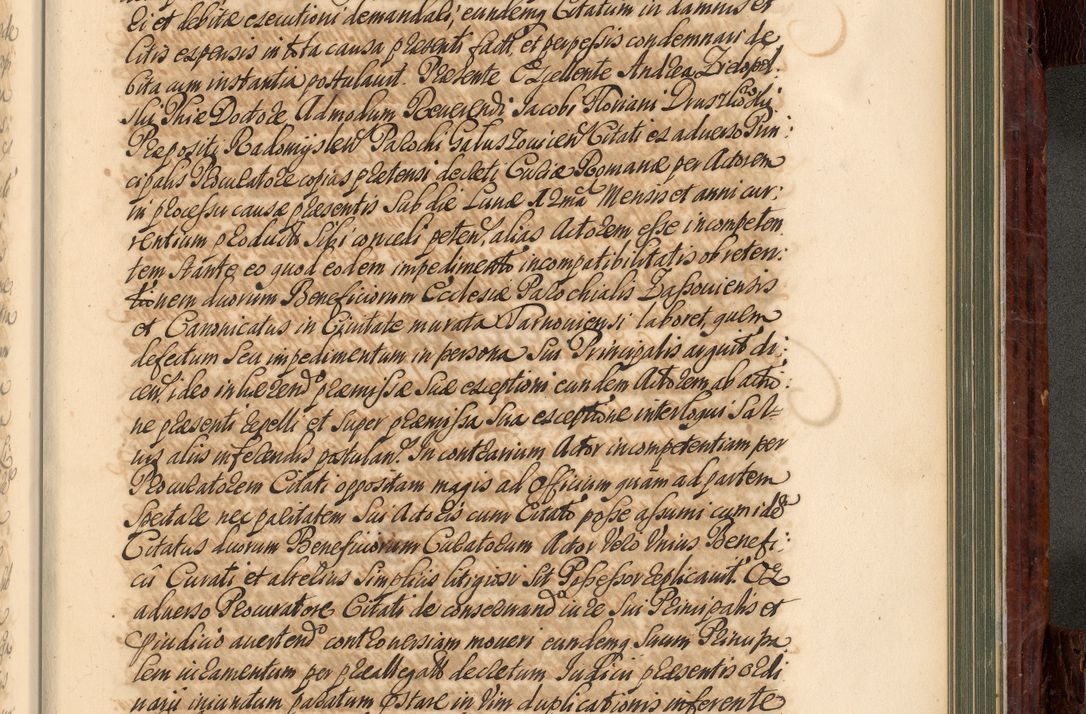 ei et debitæ executioni demandari, eundemq Citatum in damnis et
litis expensis in tota causa præsenti fact. et perpessis condemnari de
bita cum instantia postulavit. Præsente Excellente Andrea Zielopol
ski Phiæ Doctore Admodum Reverendi Jacobi Floriani Druszkoski
Præpositi Radomyslen Parochi Galuszoviens Citati ex adverso Prin:
cipalis Procuratore copias prætensi decreti Curiæ Romanæ per Actorem
in processu causæ præsentis sub die Lunæ 12ma Mensis et anni cur:
rentium producti sibi concedi peten. alias Actorem esse incompeten
tem stante eo quod eodem impedimento incompatibilitatis ob reten:
tionem duorum Beneficiorum Ecclesiæ Parochialis Zassoviensis
et Canonicatus in Civitate murata Tarnoviensi laboret, quem
defectum seu impedimentum in persona sui Principalis arguit di:
cen. ideo inhæren præmissæ suæ exceptioni eundem Actorem ab actio:
ne præsenti repelli et super præmissa sua exceptione interloqui sal
vis aliis inferendis postulan. In contrarium Actor incompetentiam per
Procuratorem Citati oppositam magis ad Officium quam ad partem
spectare nec paritatem sui Actoris cum Citato posse assumi cum ideo
Citatus duorum Beneficiorum Curatorum Actor vero unius Benefi:
cii Curati et alterius simplicis litigiosi sit Possessor replicavit. Ex
adverso Procuratore Citati de conservand jure sui Principalis et
præjudicio avertend controversiam moveri eundemq suum Principa
lem juramentum per præallegat decretum Judicii præsentis ordi
narii injunctum paratum præstare in vim duplicationis inferente